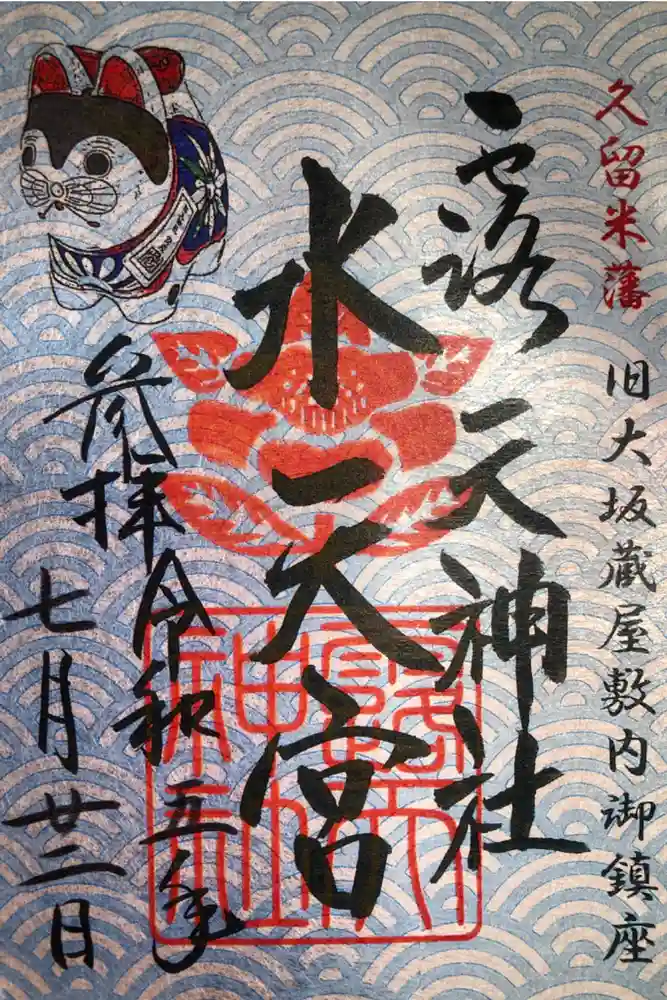 久留米藩
旧大坂蔵屋敷内御鎮座
露天神社
水天宮
参拝令和五年
七月廿二日